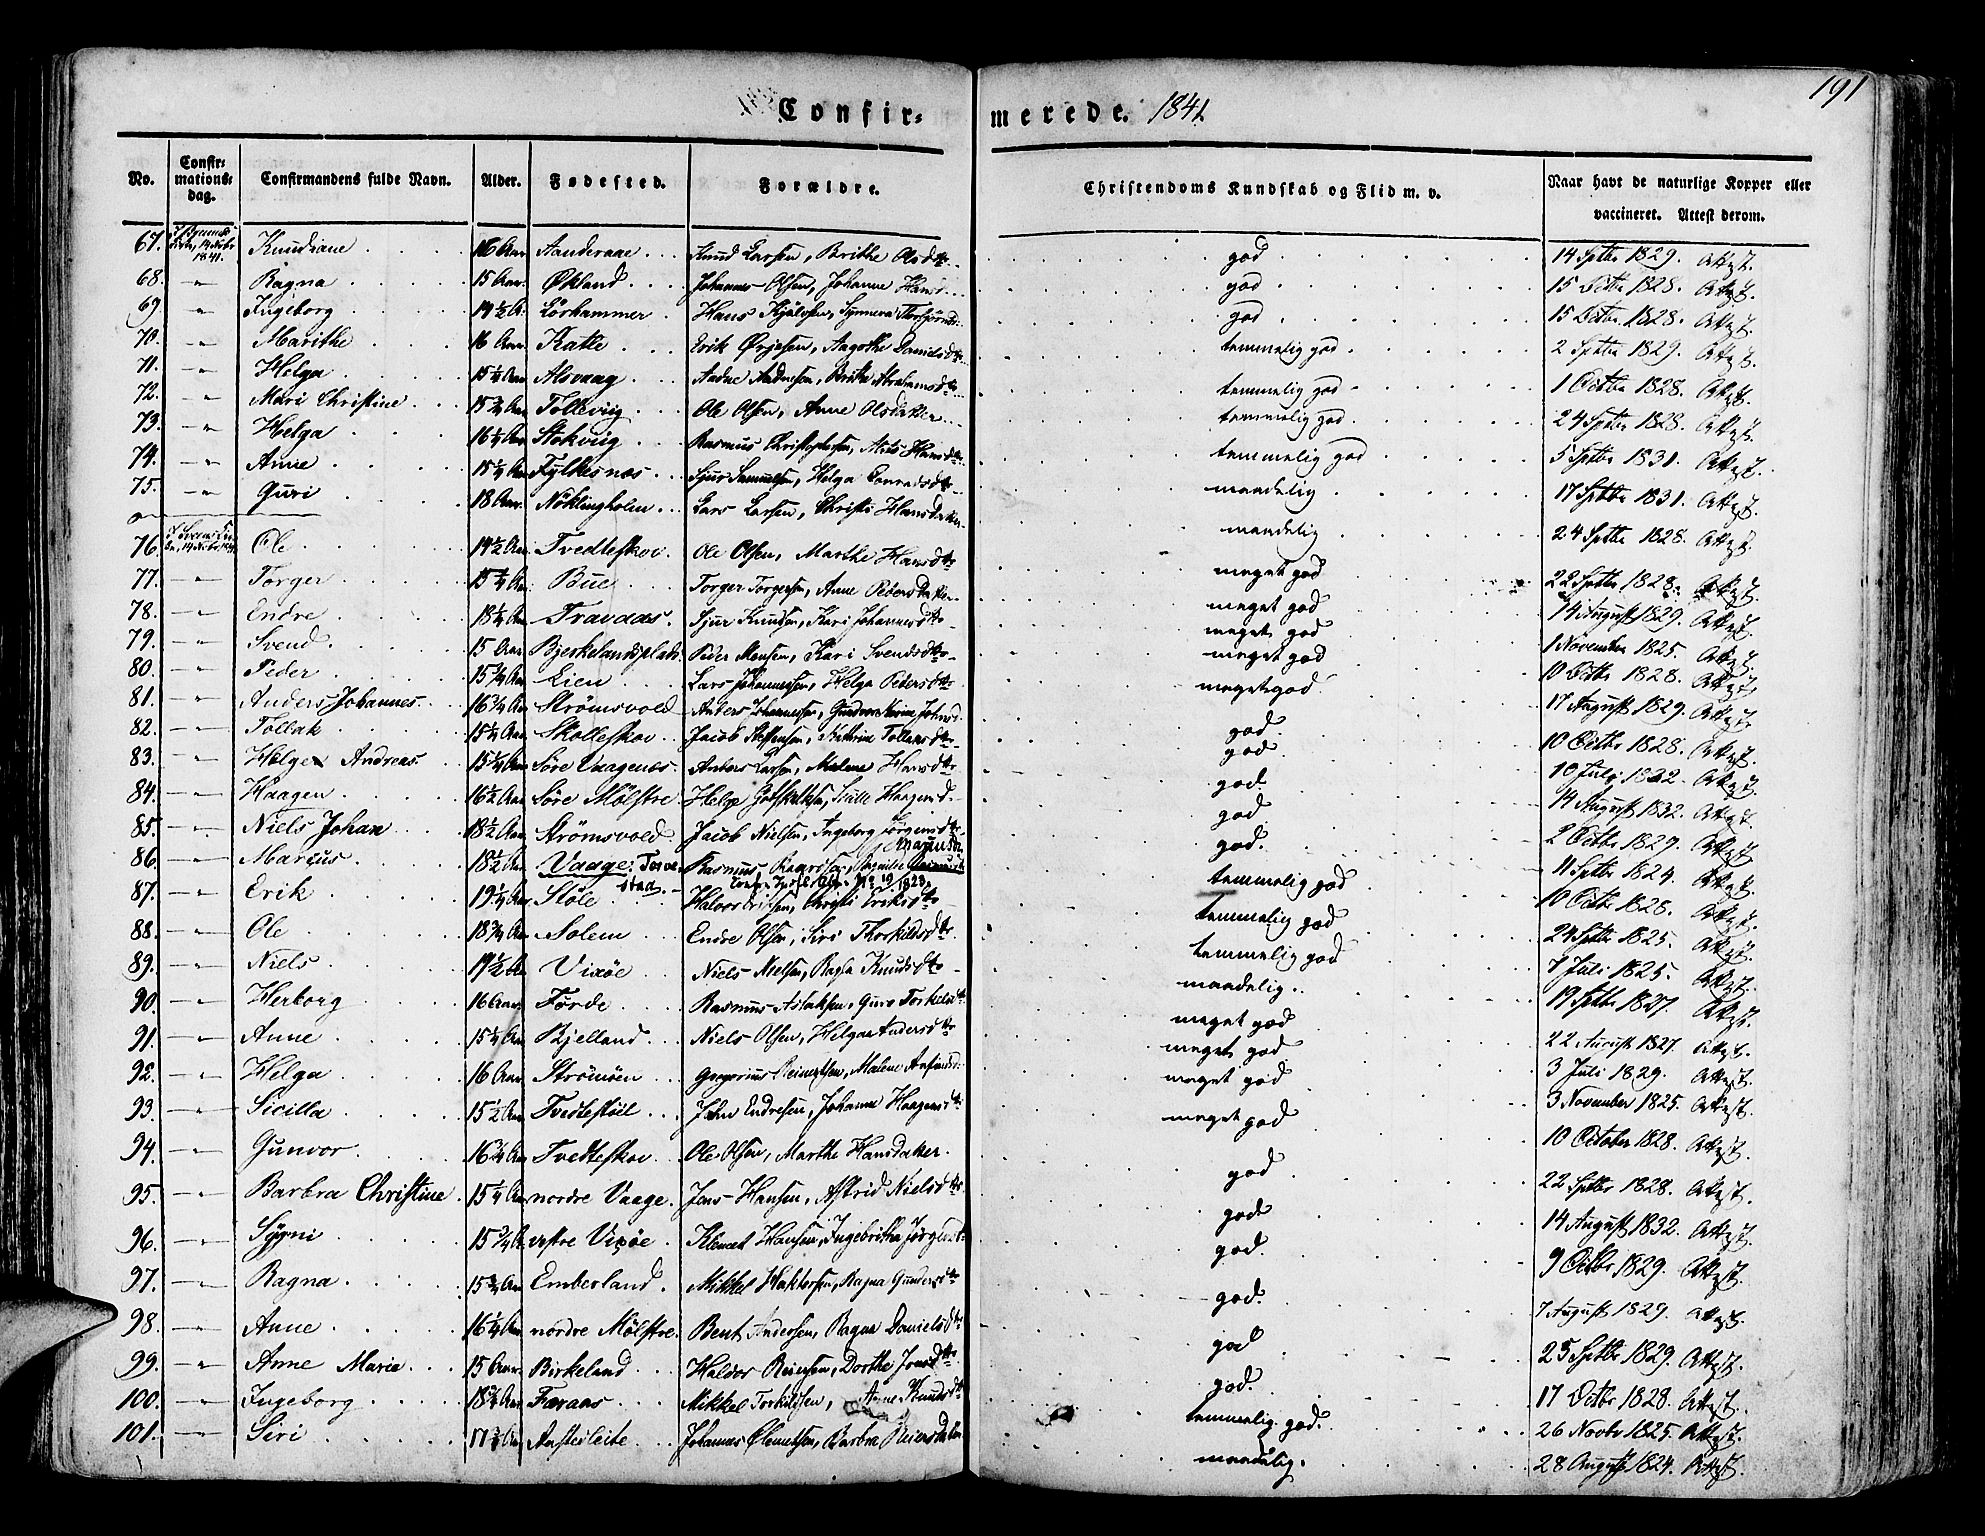 191
Confir-
merede. 1841.
No.
Confir-
mations-
dag.
Confirmandens fulde Navn.
Alder.
Fødested.
Forældre.
Christendoms Kundskab og Flid m. v.
Naar havt de naturlige Kopper eller
vaccineret. Attest derom.
67. 14 1841. Knudiane 16 Aar Aanderaae Knud Larsen, Brithe Olsdtr god 14 Septbr 1829. Attest.
68. Ragna 15 Aar. Økland Johannes Olsen, Johanne Hansd. god 15 Octbr 1828. Attest.
69. Ingeborg 14½ A. Lørhammer Hans god 15 Octbr 1828. Attest.
70. Marithe 16 Aar Katle Erik Ørjesen, Aagothe Danielsdtr temmelig god 2 Septbr 1829. Attest.
71. Helga 15¼ Aar Alsvaag Aadne Aadnesen, Brithe Abrahamsdtr temmelig god 1 Octbr 1828. Attest.
72. Mari Christine 15¾ Aar Tollevig Ole Olsen, Anne Olsdatter temmelig god 24 Septbr 1828. Attest.
73. Helga 16¼ Aar Stokvig Rasmus Christophersen, Hansdtr temmelig god 5 Septbr 1831. Attest.
74. Anne 15¼ Aar Fylkesnæs Sjur Samuelsen, Helga Conradsdtr maadelig 17 Septbr 1831. Attest.
75. Guri 18 Aar. Nøklingholm Lars Larsen, Christi Hansdatter maadelig 24 Septbr 1828. Attest.
76. Ole 14½ Aar Tvedteskov. Ole Olsen, Marthe Hansdtr meget god 22 Septbr 1828. Attest.
77. Torger 15¼ Aar. Bue Torger Torgersen, Anne Pedersdatter meget god 14 August 1829. Attest.
78. Endre 18¼ Aar Travaas. Sjur Knudsen, Kari Johannesdtr meget god 1 November 1825. Attest.
79. Svend 15 Aar Bjerkelandsplads. Peder Monsen, Kari Svendsdtr meget god 10 Octbr 1828. Attest.
80. Peder 15¼ Aar Lien Lars Johannessen, Helga Pedersdtr meget god 17 August 1829. Attest.
81. Anders Johannes 16¼ Aar Strømsvold Anders Johannessen, god 10 Octbr 1828. Attest.
82. Tollak 15¼ Aar Skolleskov Jacob Steffensen, Tollaksdtr god 10 Juli Attest.
83. Helge Andreas. 15¼ Aar Søre Vaagenes. Anders Larsen, Malene Hansdtr god 14 August 1832. Attest.
84. Haagen 16½ Aar Søre Mølstre Helge Gotskalksen, Haagensd. god 2 Octbr 1829. Attest.
85. Niels Johan 18½ Aar Strømsvold. Jacob Nielsen, Ingeborg Jørgensdtr god. 11 Septbr 1824. Attest.
86. Marcus. 18½ Aar Vaage: Rasmus temmelig god 10 Octbr 1828. Attest.
87. Erik 19¼ Aar Støle Halvor Eriksen, Christi Eriksdtr temmelig god 24 Septbr 1825. Attest.
88. Ole 18¾ Aar Solem Endre Olsen, Siri Thorkildsdtr temmelig god 7 Juli 1825. Attest.
89. Niels 19½ Aar Vixøe Niels Nielsen, Ragla Knudsdtr maadelig. 19 Septbr 1827. Attest.
90. Herborg 16 Aar Førde. Rasmus Aslaksen, Guro Torkelsdtr meget god 22 August 1827. Attest.
91. Anne 15¼ Aar Bjelland Niels Olsen, Helga Andersdtr meget god 3 Juli 1829. Attest.
92. Helga 16 Aar Strømøen Gregorius Reinertsen, Malene meget god 3 November 1825. Attest.
93. Sicilla 15½ Aar Tvedtestøil John Endresen, Johanne Haagensdtr meget god 10 October 1828. Attest.
94. Gunvor 16¼ Aar Tvedteskov Ole Olsen, Marthe Hansdatter. god 22 Septbr 1828. Attest.
95. Barbra Christine. 15¼ Aar nordre Vaage. Jens Hansen, Astrid Nielsdtr god 14 August 1832. Attest.
96. Sygni 15¾ A. vestre Vixøe. Klemet Hansen, Ingebritha god. 9 Octbr 1829. Attest.
97. Ragna 15¾ Aar Emberland Mikkel Ragna Gundersdtr god. 7 August 1829. Attest.
98. Anne 16¼ Aar nordre Mølstre. Bent Andersen, Ragna Danielsdtr god 25 Septbr 1829. Attest.
99. Anne Maria 15 Aar. Birkeland Haldor Reiersen, Dorthe Jonsdtr god. 17 Octbr 1828. Attest.
100. Ingeborg 18¾ Aar Færaas Mikkel Torkildsen, Anne Knudsdtr temmelig god. 26 Novbr 1825. Attest.
101. Siri 17¾ Aar Johannes Barbra Reiersdatter maadelig. 28 August 1824. Attest.